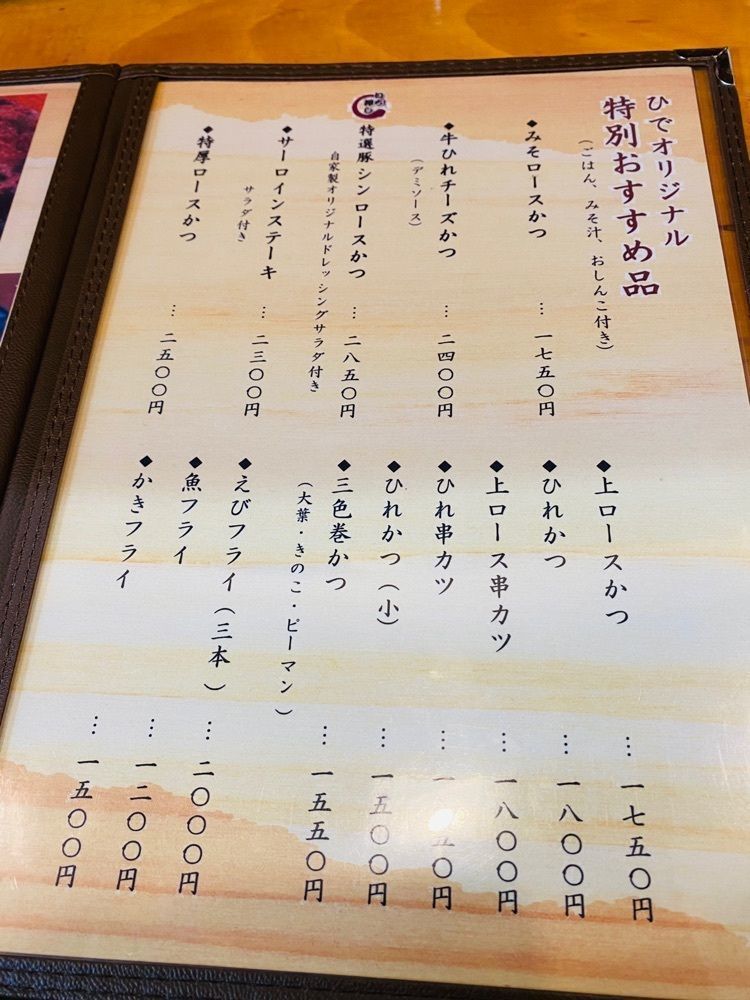 ひでオリジナル
特別おすすめ品
(ごはん、みそ汁、おしんこ付き)
◆みそロースかつ … 一七五〇円
◆牛ひれチーズかつ … 二四〇〇円
(デミソース)
◆特選豚シンロースかつ … 二八五〇円
自家製オリジナルドレッシングサラダ付き
◆サーロインステーキ … 二三〇〇円
サラダ付き
◆特厚ロースかつ … 二五〇〇円
◆上ロースかつ … 一七五〇円
◆ひれかつ … 一八〇〇円
◆上ロース串カツ … 一八〇〇円
◆ひれ串カツ … 一 五〇円
◆ひれかつ(小) … 一五〇〇円
◆三色巻かつ … 一五五〇円
(大葉・きのこ・ピーマン)
◆えびフライ(三本) … 二〇〇〇円
◆魚フライ … 一二〇〇円
◆かきフライ … 一五〇〇円